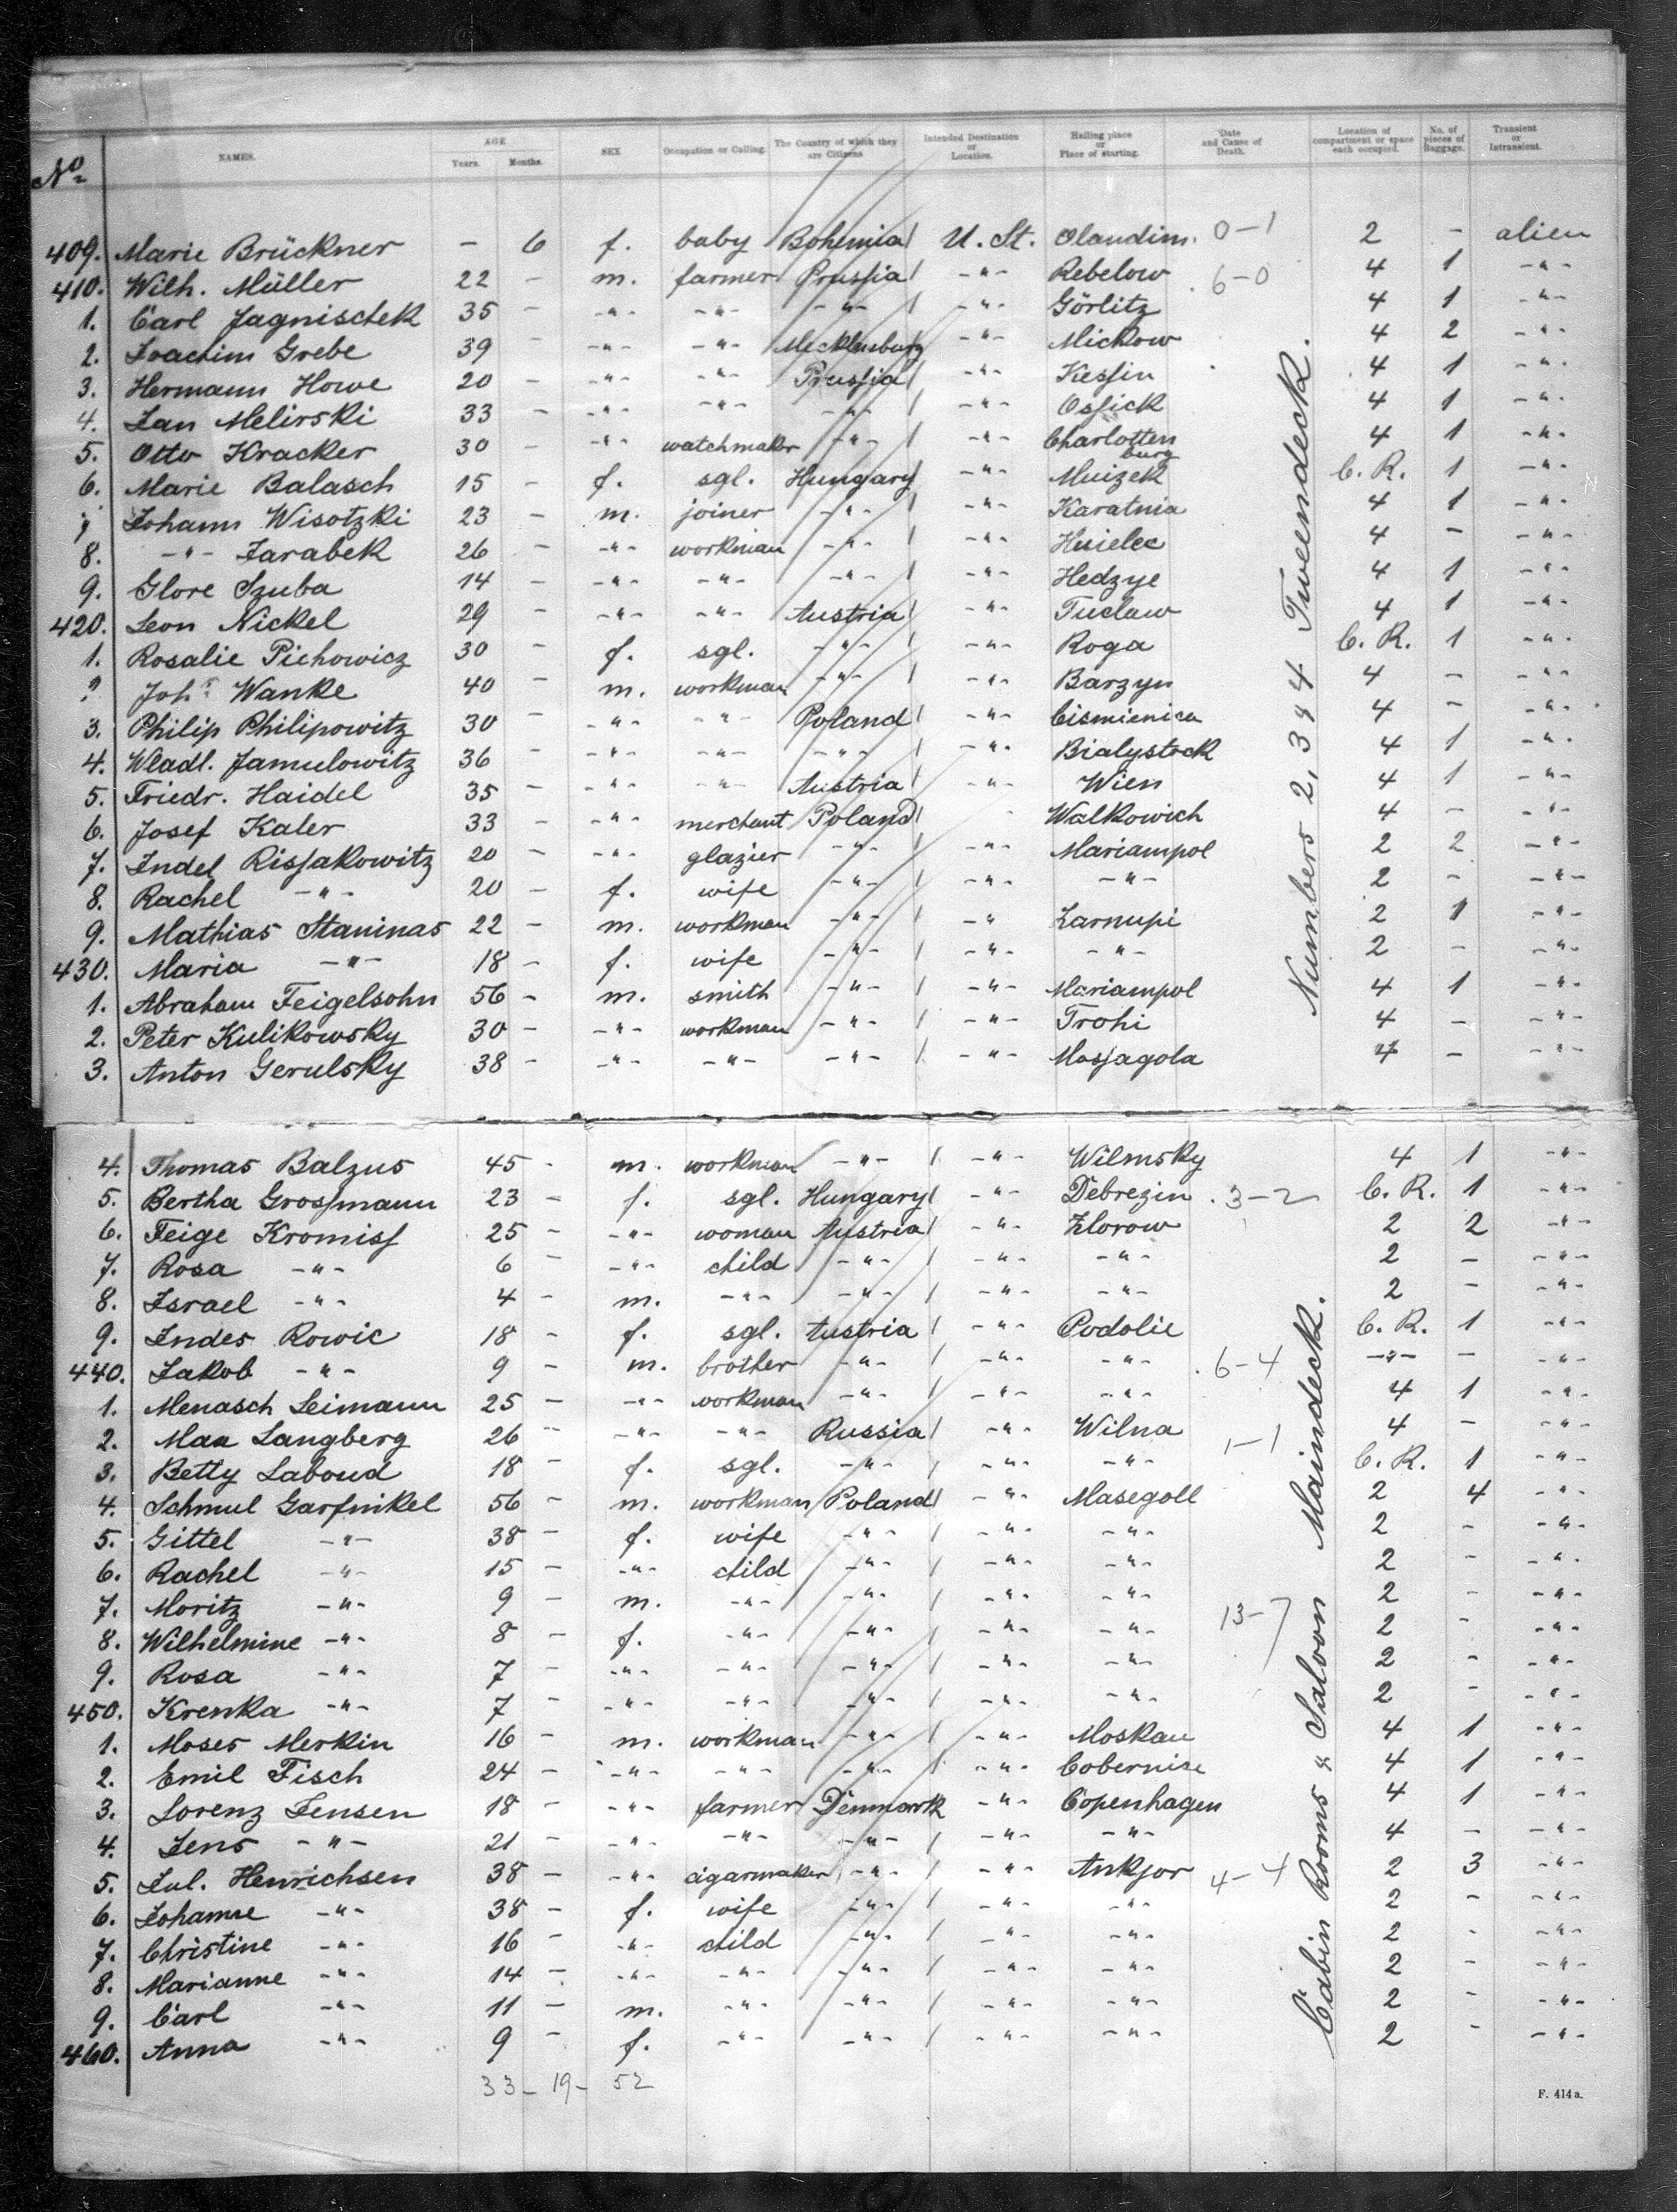 No
NAMES. AGE Years. Months. SEX Occupation or Calling. The Country of which they are Citizens Intended Destination or Location. Hailing place or Place of starting. Date and Cause of Death. Location of compartment or space each occupied. No. of pieces of Baggage. Transient or Intransient.
409. Marie Brückner - 6 f. baby Bohemia U. St. Olaudim. 0-1 2 - alien
410. Wilh. Müller 22 - m. farmer Prussia -"- Rebelow 6-0 4 1 -"-
1. Carl Jagnischek 35 - -"- -"- -"- -"- Görlitz 4 1 -"-
2. Joachim Grebe 39 - -"- -"- Mecklenburg -"- Mickow 4 2 -"-
3. Hermann Howe 20 - -"- -"- Prussia -"- Kessin 4 1 -"-
4. Jan Melirski 33 - -"- -"- -"- -"- Ossick 4 1 -"-
5. Otto Kracker 30 - -"- watchmaker -"- -"- Charlottenburg 4 1 -"-
6. Marie Balasch 15 - f. sgl. Hungary -"- Muizek C. R. 1 -"-
7 Johann Wisotzki 23 - m. joiner -"- -"- Karatnia 4 1 -"-
8. -"- Jarabek 26 - -"- workman -"- -"- 4 - -"-
9. Glore Szuba 14 - -"- -"- -"- -"- Hedzye 4 1 -"-
420. Leon Nickel 29 - -"- -"- Austria -"- Tuclaw 4 1 -"-
1. Rosalie Pichowicz 30 - f. sgl. -"- -"- Roga C. R. 1 -"-
2 Joh. Wanke 40 - m. workman -"- -"- Barzyn 4 - -"-
3. Philip Philipowitz 30 - -"- -"- Poland -"- Cismienica 4 - -"-
4. Wladl. Jamulowitz 36 - -"- -"- -"- -"- Bialystock 4 1 -"-
5. Friedr. Haidel 35 - -"- -"- Austria -"- Wien 4 1 -"-
6. Josef Kaler 33 - -"- merchant Poland - Walkowich 4 - -"-
7. Indel Rissakowitz 20 - -"- glazier -"- -"- Mariampol 2 2 -"-
8. Rachel -"- 20 - f. wife -"- -"- -"- 2 - -"-
9. Mathias Staninas 22 - m. workman -"- -" Zarnupi 2 1 -"-
430. Maria -"- 18 - f. wife -"- -"- -"- 2 - -"-
1. Abraham Feigelsohn 56 - m. smith -"- -"- Mariampol 4 1 -"-
2. Peter Kulikowsky 30 - -"- workman -"- -"- Trohi 4 - -"-
3. Anton Gerulsky 38 - -"- -"- -"- -"- Massagola 4 - -"-
Numbers 2, 3 & 4 Tweendeck.
4. Thomas Balzus 45 - m. workman -"- -"- Wilmsky 4 1 -"-
5. Bertha Grossmann 23 - f. sgl. Hungary -"- Debrezin . 3-2 C. R. 1 -"-
6. Feige Kromiss 25 - -"- woman Austria -"- Zlorow 2 2 -"-
7. Rosa -"- 6 - -"- child -"- -"- -"- 2 - -"-
8. Israel -"- 4 - m. -"- -"- -"- -"- 2 - -"-
9. Indes Rowic 18 - f. sgl. Austria -"- Podolie C. R. 1 -"-
440. Jakob -"- 9 - m. brother -"- -"- -"- . 6-4 -"- - -"-
1. Menasch Leimann 25 - -"- workman -"- -"- -"- 4 1 -"-
2. Max Langberg 26 - -"- -"- Russia -"- Wilna 1-1 4 - -"-
3. Betty Laboud 18 - f. sgl. -"- -"- -"- C. R. 1 -"-
4. Schmul Garfinkel 56 - m. workman Poland -"- Masegoll 2 4 -"-
5. Gittel -"- 38 - f. wife -"- -"- -"- 2 - -"-
6. Rachel -"- 15 - -"- child -"- -"- -"- 2 - -"-
7. Moritz -"- 9 - m. -"- -"- -"- -"- 13-7 2 - -"-
8. Wilhelmine -"- 8 - f. -"- -"- -"- -"- 2 - -"-
9. Rosa -"- 7 - -"- -"- -"- -"- -"- 2 - -"-
450. Krenka -"- 7 - -"- -"- -"- -"- -"- 2 - -"-
1. Moses Merkin 16 - m. workman -"- -"- Moskau 4 1 -"-
2. Emil Fisch 24 - -"- -"- -"- -"- Cobernise 4 1 -"-
3. Lorenz Jensen 18 - -"- farmer Denmark -"- Copenhagen 4 1 -"-
4. Jens -"- 21 - -"- -"- -"- -"- -"- 4 - -"-
5. Jul. Henrichsen 38 - -"- cigarmaker -"- -"- Ankjor 4-4 2 3 -"-
6. Johanne -"- 38 - f. wife -"- -"- -"- 2 - -"-
7. Christine -"- 16 - -"- child -"- -"- -"- 2 - -"-
8. Marianne -"- 14 - -"- -"- -"- -"- -"- 2 - -"-
9. Carl -"- 11 - m. -"- -"- -"- -"- 2 - -"-
460. Anna -"- 9 - f. -"- -"- -"- -"- 2 - -"-
Cabin Rooms & Saloon Maindeck.
33-19- 52
F. 414 a.